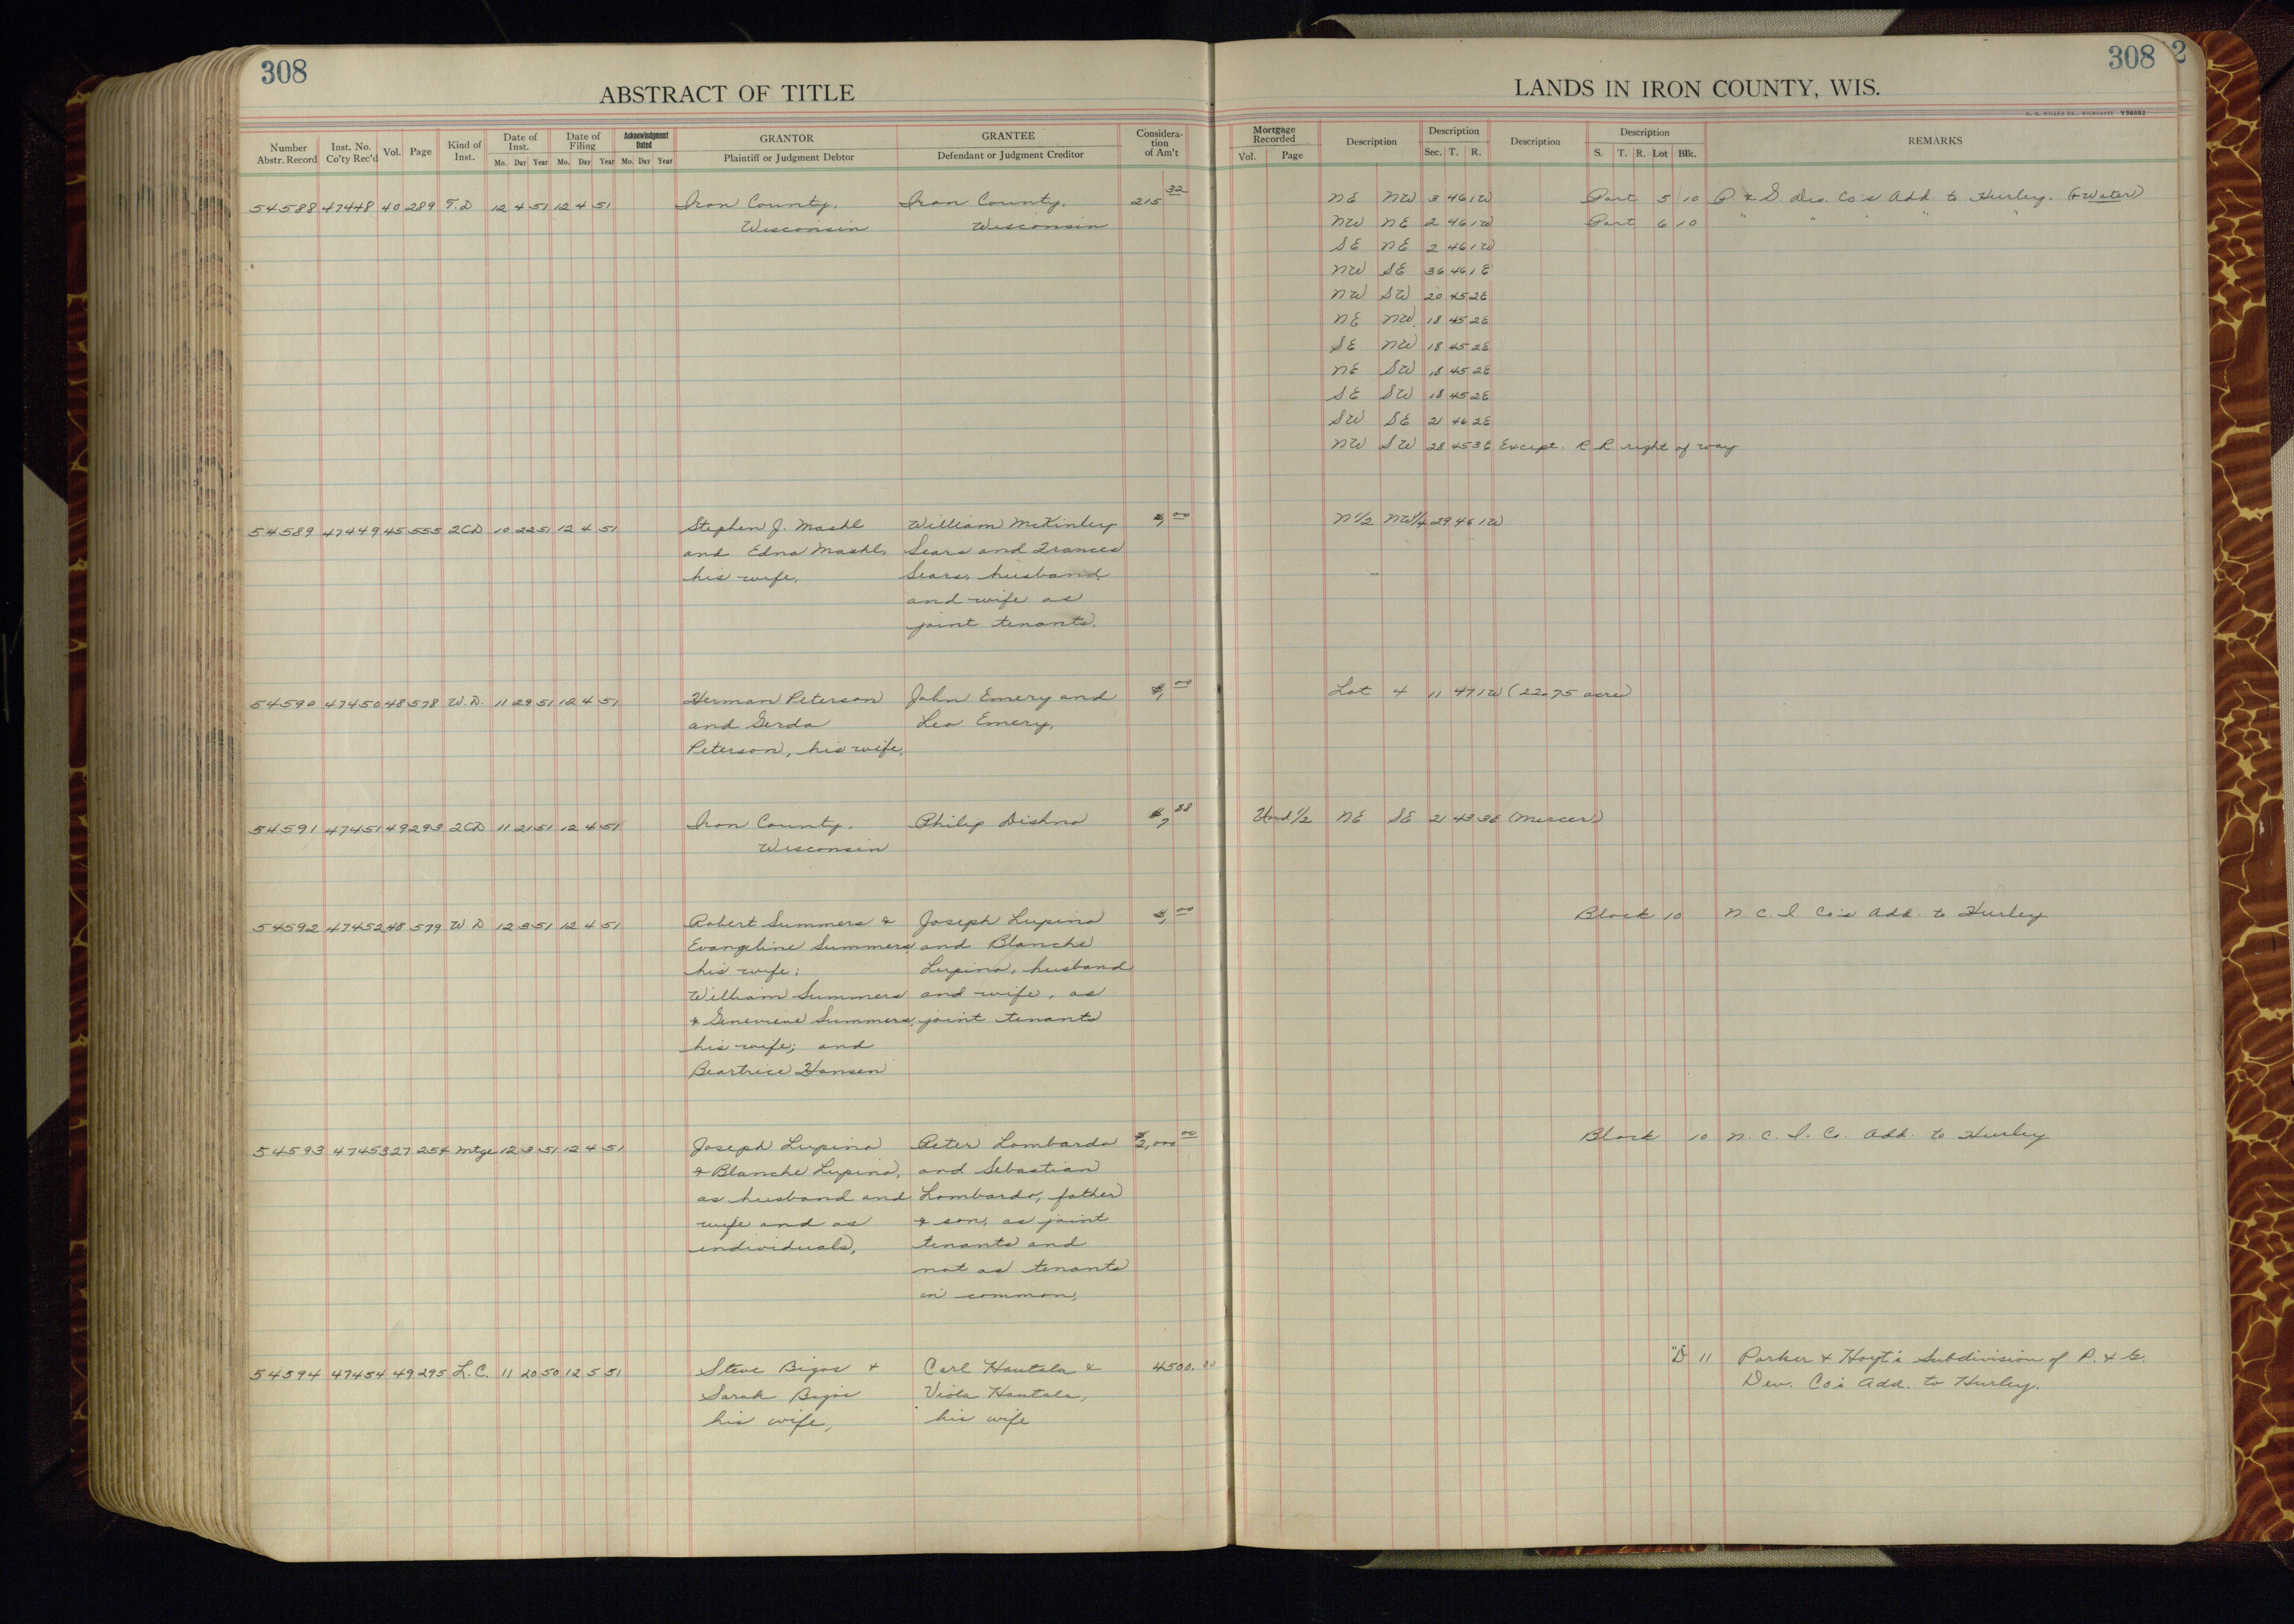 308
ABSTRACT OF TITLE
LANDS IN IRON COUNTY, WIS.
308
2
H. C. MILLER CO., MILWAUKEE Y56982
Number Abstr. Record Inst. No. Co'ty Rec'd Vol. Page Kind of Inst. Date of Inst. Mo. Day Year Date of Filing Mo. Day Year Acknowledgment Dated Mo. Day Year GRANTOR Plaintiff or Judgment Debtor GRANTEE Defendant or Judgment Creditor Consideration of Am't Mortgage Recorded Vol. Page Description Description Sec. T. R. Description Description S. T. R. Lot Blk. REMARKS
54588 47448 40 289 T.D 12 4 51 12 4 51 Iron County, Iron County, 215 32 NE NW 3 46 1W Part 5 10 P. & G. Dev. Co's Add. to Hurley. (& Water)
Wisconsin Wisconsin NW NE 2 46 1W Part 6 10 " " " "
SE NE 2 46 1W
NW SE 36 46 1E
NW SW 20 45 2E
NE NW 18 45 2E
SE NW 18 45 2E
NE SW 18 45 2E
SE SW 18 45 2E
SW SE 21 46 2E
NW SW 28 45 3E Except R.R. right of way
54589 47449 45 555 2CD 10 22 51 12 4 51 Stephen J. Mashl William McKinley $1,00 N1/2 NW1/4 29 46 1W
and Edna Mashl, Sears and Frances
his wife, Sears, husband
and wife as
joint tenants.
54590 47450 48 578 W.D. 11 29 51 12 4 51 Herman Peterson John Emery and $1,00 Lot 4 11 47 1W (22.75 acre)
and Gerda Leo Emery,
Peterson, his wife,
54591 47451 49 293 2CD 11 21 51 12 4 51 Iron County, Philip Dishno 88 Und 1/2 NE SE 21 43 3E (Mercer)
Wisconsin
54592 47452 48 579 W.D 12 3 51 12 4 51 Robert Summers & Joseph Lupino $1,00 Block 10 N.C.I. Co's Add. to Hurley
Evangeline Summers, and Blanche
his wife; Lupino, husband
William Summers and wife, as
& Genevieve Summers, joint tenants
his wife; and
Beartrice Hansen
54593 47453 27 254 Mtge 12 3 51 12 4 51 Joseph Lupino Peter Lombardo $2,000 00 Block 10 N.C.I. Co. Add. to Hurley
& Blanche Lupino, and Sebastian
as husband and Lombardo, father
wife and as & son, as joint
individuals, tenants and
not as tenants
in common,
54594 47454 49 295 L.C. 11 20 50 12 5 51 Steve Bigos & Carl Hautala & 4500.00 "D" 11 Parker & Hoyt's Subdivision of P. & G.
Sarah Bigos Viola Hautala, Dev. Co's Add. to Hurley.
his wife, his wife